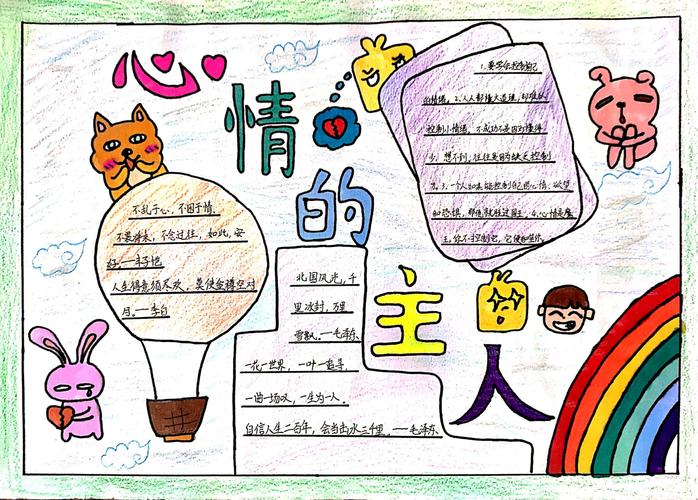 心情的主人
1.要学会控制自己
的情绪。2.人人都懂大道理,却难以
控制小情绪,不成功不是因为懂得
少,想不到,往往是因为缺乏控制
力。3.一个人如果能控制自己的心情、欲望
和恐惧,那他就胜过国王。4.心情是魔
王,你不控制它,它便吞噬你。
不乱于心,不困于情。
不畏将来,不念过往,如此,安
好。—丰子恺
人生得意须尽欢,莫使金樽空对
月。—李白
北国风光,千
里冰封,万里
雪飘。—毛泽东
一花一世界,一叶一追寻。
一曲一场叹,一生为一人。
自信人生二百年,会当击水三千里。—毛泽东